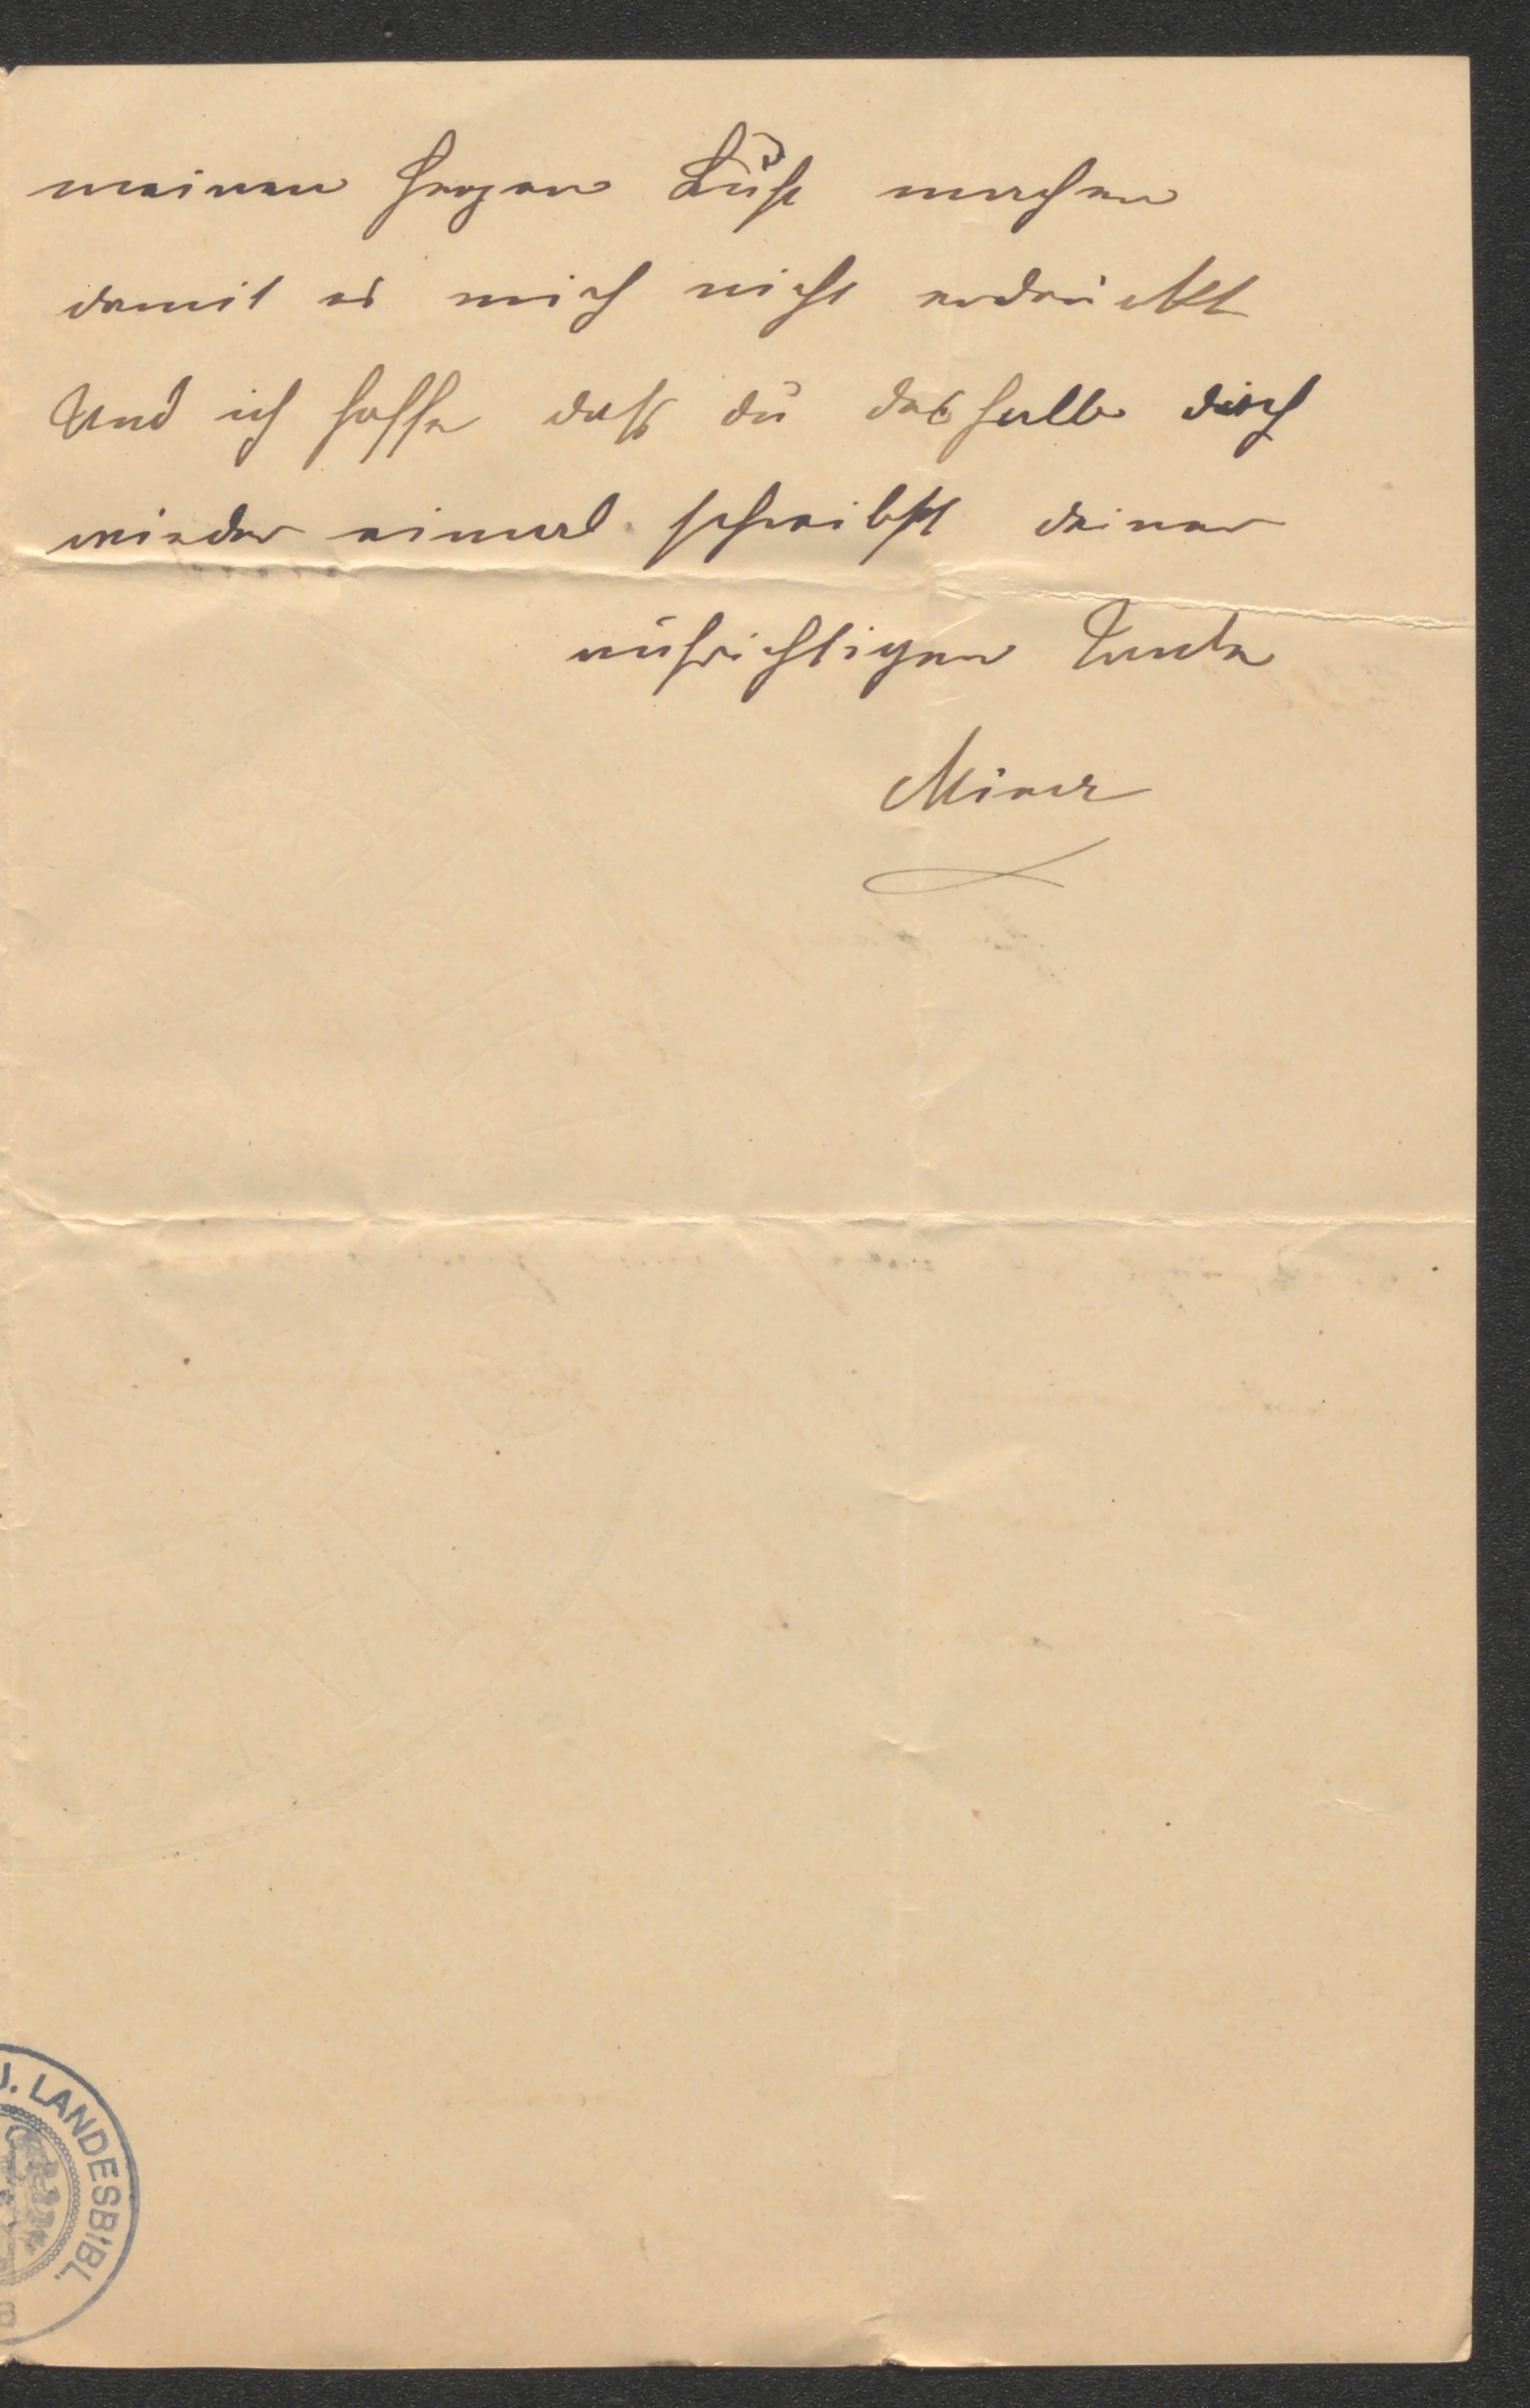 meinen Herzen Luft machen
damit es mich nicht erdrückt
Und ich hoffe daß du deshalb doch
wieder einmal schreibst deiner
aufrichtigen Tante
Mina
J. LANDESBIBL.